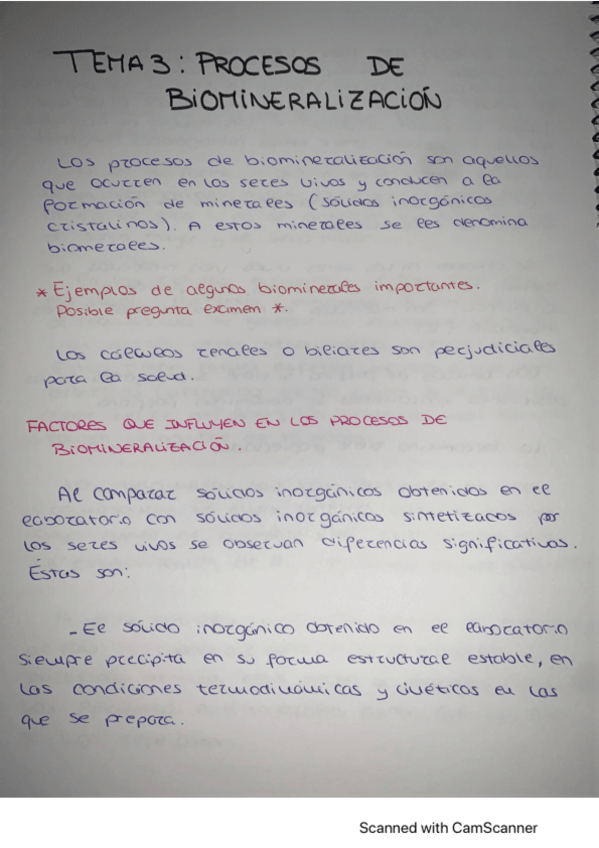 TEMA 3: PROCESOS DE
BIOMINERALIZACIÓN
Los procesos de biomineralización son aquellos
que ocurren en los seres vivos y conducen a la
formación de minerales (sólidos inorgánicos
cristalinos). A estos minerales se les denomina
biomerales.
* Ejemplos de algunos biominerales importantes.
Posible pregunta examen *.
Los cálculos renales o biliares son perjudiciales
para la salud.
FACTORES QUE INFLUYEN EN LOS PROCESOS DE
BIOMINERALIZACIÓN.
Al comparar sólidos inorgánicos obtenidos en el
laboratorio con sólidos inorgánicos sintetizados por
los seres vivos se observan diferencias significativas.
Éstas son:
- El sólido inorgánico obtenido en el laboratorio
siempre precipita en su forma estructural estable, en
las condiciones termodinámicas y cinéticos en las
que se prepara.
Scanned with CamScanner